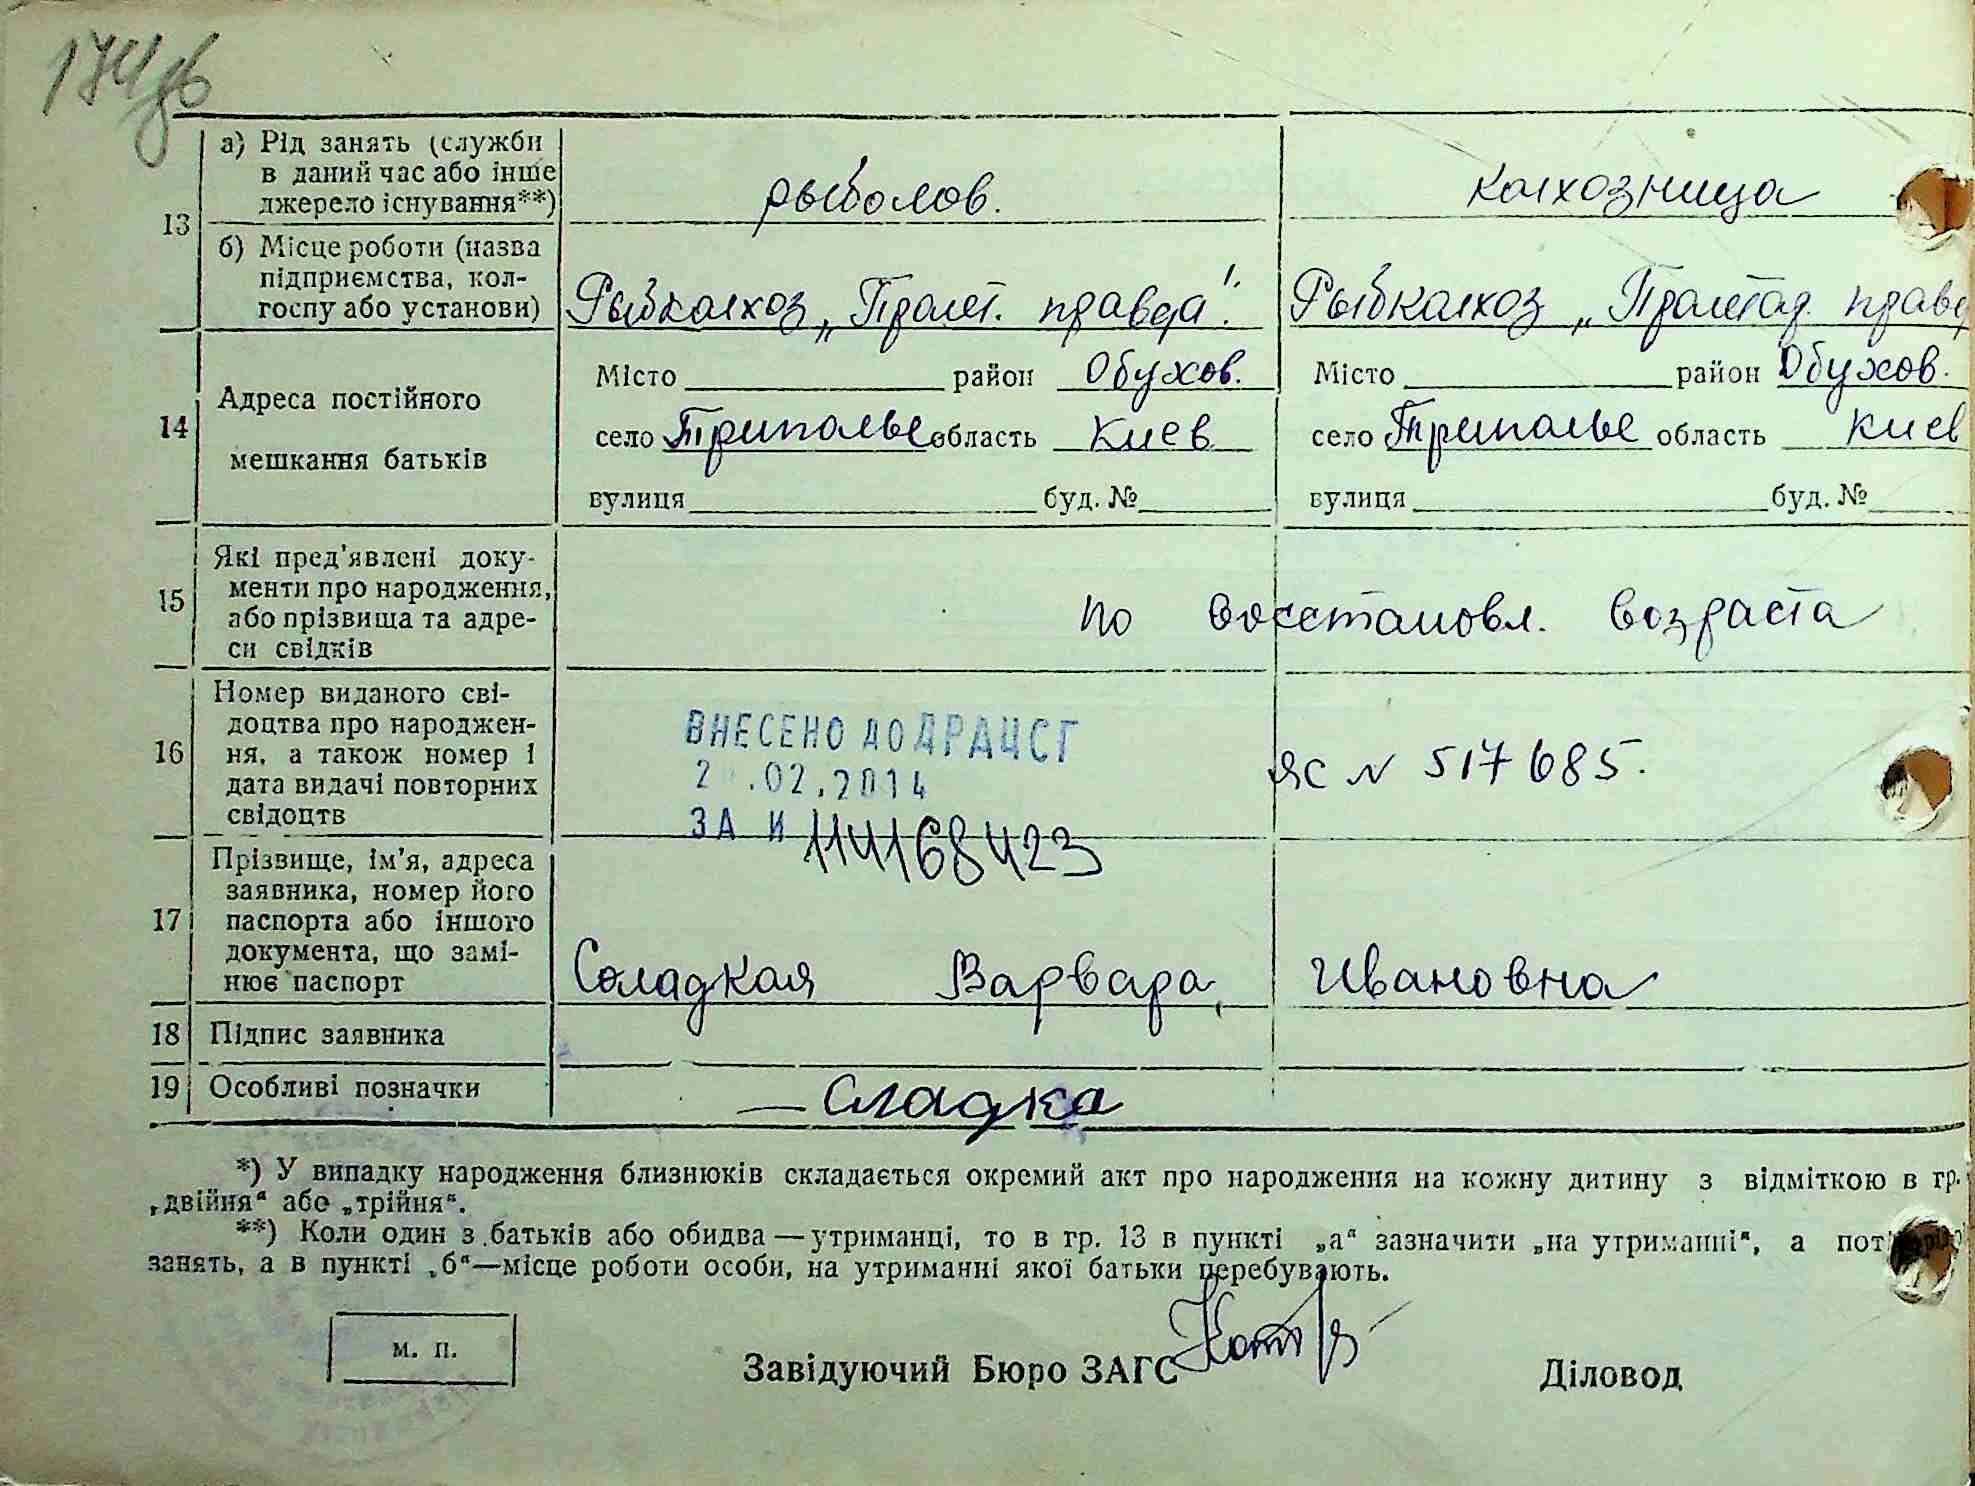 174зв
а) Рід занять (служби
в даний час або інше
джерело існування**)
рыболов.
колхозница
13
б) Місце роботи (назва
підприємства, кол-
госпу або установи)
Рыбколхоз „Пролет. правда".
Рыбколхоз „Пролетар. правд
14
Адреса постійного
мешкання батьків
Місто район Обухов.
село Триполье область Киев
вулиця буд. №
Місто район Обухов.
село Триполье область Киев
вулиця буд. №
15
Які пред'явлені доку-
менти про народження,
або прізвища та адре-
си свідків
по восстановл. возраста
16
Номер виданого сві-
доцтва про народжен-
ня, а також номер і
дата видачі повторних
свідоцтв
ВНЕСЕНО ДО ДРАЦСГ
2 .02.2014
ЗА № 114168423
ЯС N 517685.
17
Прізвище, ім'я, адреса
заявника, номер його
паспорта або іншого
документа, що замі-
нює паспорт
Сладкая Варвара Ивановна
18 Підпис заявника
19 Особливі позначки
Сладка
*) У випадку народження близнюків складається окремий акт про народження на кожну дитину з відміткою в гр.
„двійня" або „трійня".
**) Коли один з батьків або обидва—утриманці, то в гр. 13 в пункті „а" зазначити „на утриманні", а пот
занять, а в пункті „б"—місце роботи особи, на утриманні якої батьки перебувають.
м. п.
Завідуючий Бюро ЗАГС
Діловод